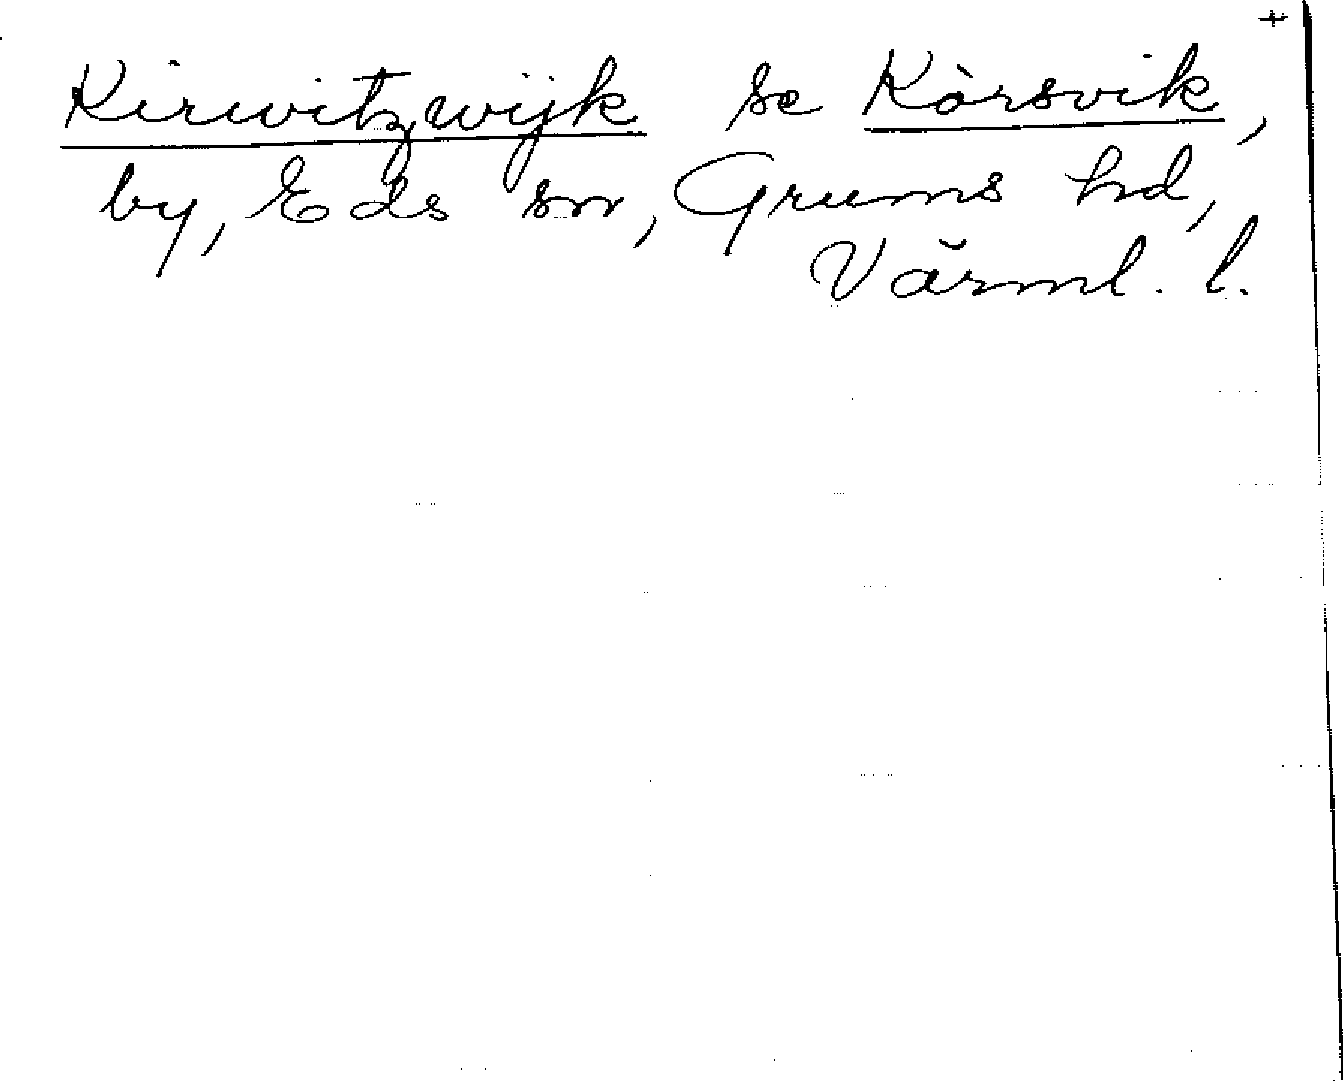 +
Kirwitzwijk se Körsvik,
by, Eds sn, Grums hd,
Värml. l.